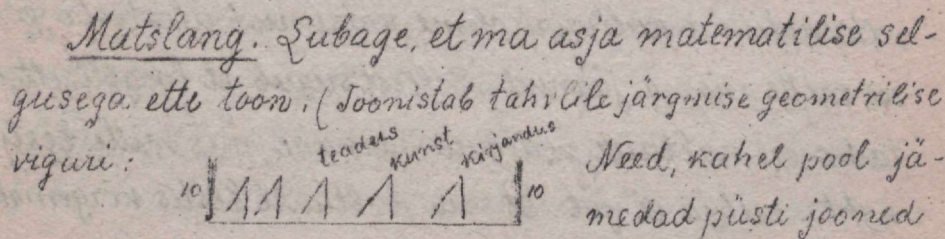 Matslang. Lubage, et ma asja matematilise sel-
gusega ette toon. (Joonistab tahvlile järgmise geometrilise
viguri:
teadus
kunst
kirjandus
10
10
Need, kahel pool jä-
medad püsti jooned